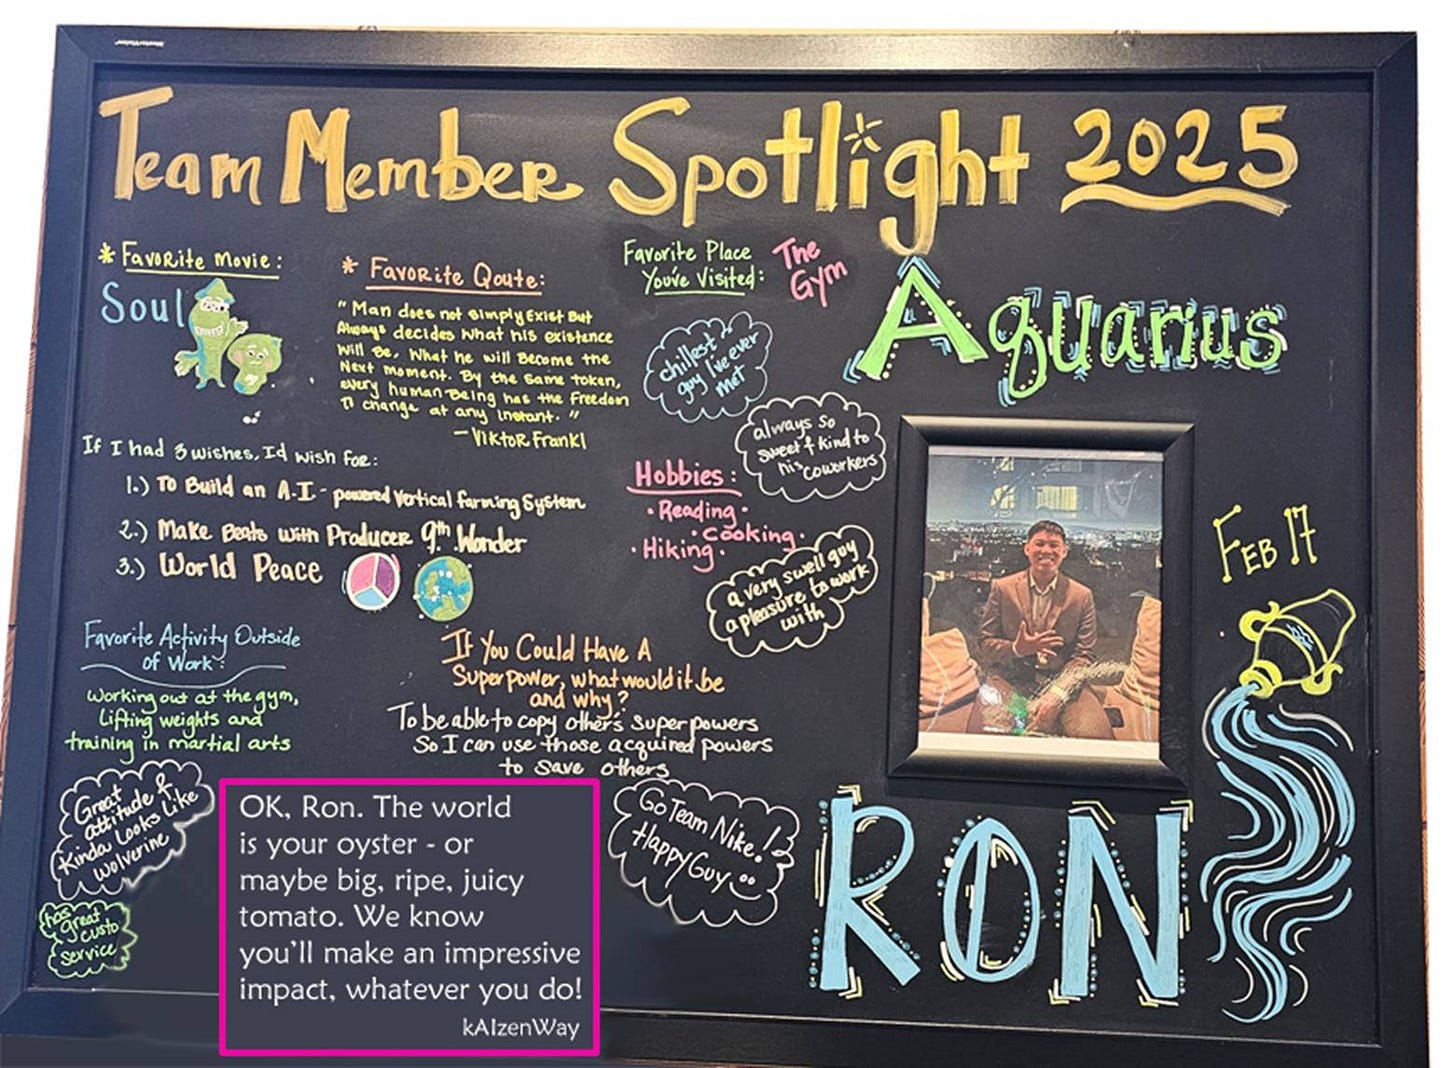 Team Member Spotlight 2025
* Favorite Movie:
Soul
* Favorite Qoute:
"Man does not simply Exist But
Always decides what his existence
will Be, What he will Become the
Next moment. By the same token,
every human-Being has the Freedom
to change at any instant."
- Viktor Frankl
Favorite Place
You've Visited:
The
Gym
Aquarius
chillest
guy I've ever
met
always so
sweet & kind to
his coworkers
If I had 3 wishes, I'd wish for:
1.) To Build an A.I - powered Vertical farming System
2.) Make Beats with Producer 9th Wonder
3.) World Peace
Hobbies:
• Reading •
• Cooking •
• Hiking •
a very swell guy
a pleasure to work
with
Feb 17
Favorite Activity Outside
of Work:
Working out at the gym,
Lifting weights and
training in martial arts
If You Could Have A
Superpower, what would it be
and why?
To be able to copy others' superpowers
So I can use those acquired powers
to save others
Great
attitude &
Kinda Looks Like
Wolverine
has
great
custo
service
OK, Ron. The world
is your oyster - or
maybe big, ripe, juicy
tomato. We know
you'll make an impressive
impact, whatever you do!
kAIzenWay
Go Team Nike!
Happy Guy
RON